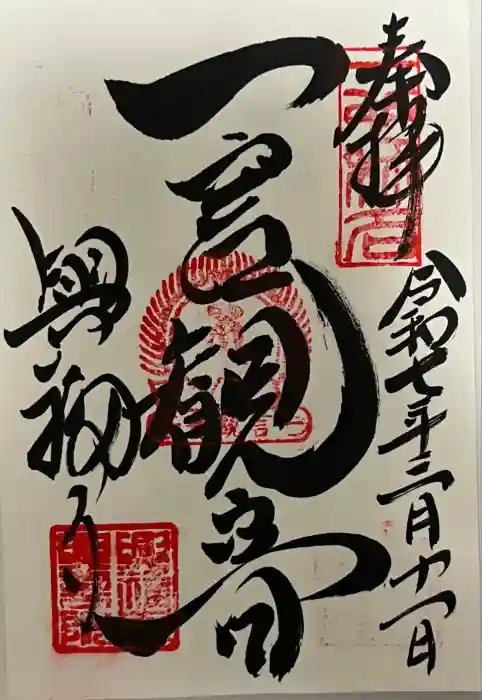 奉拝
令和七年三月十一日
一言観音
興福寺